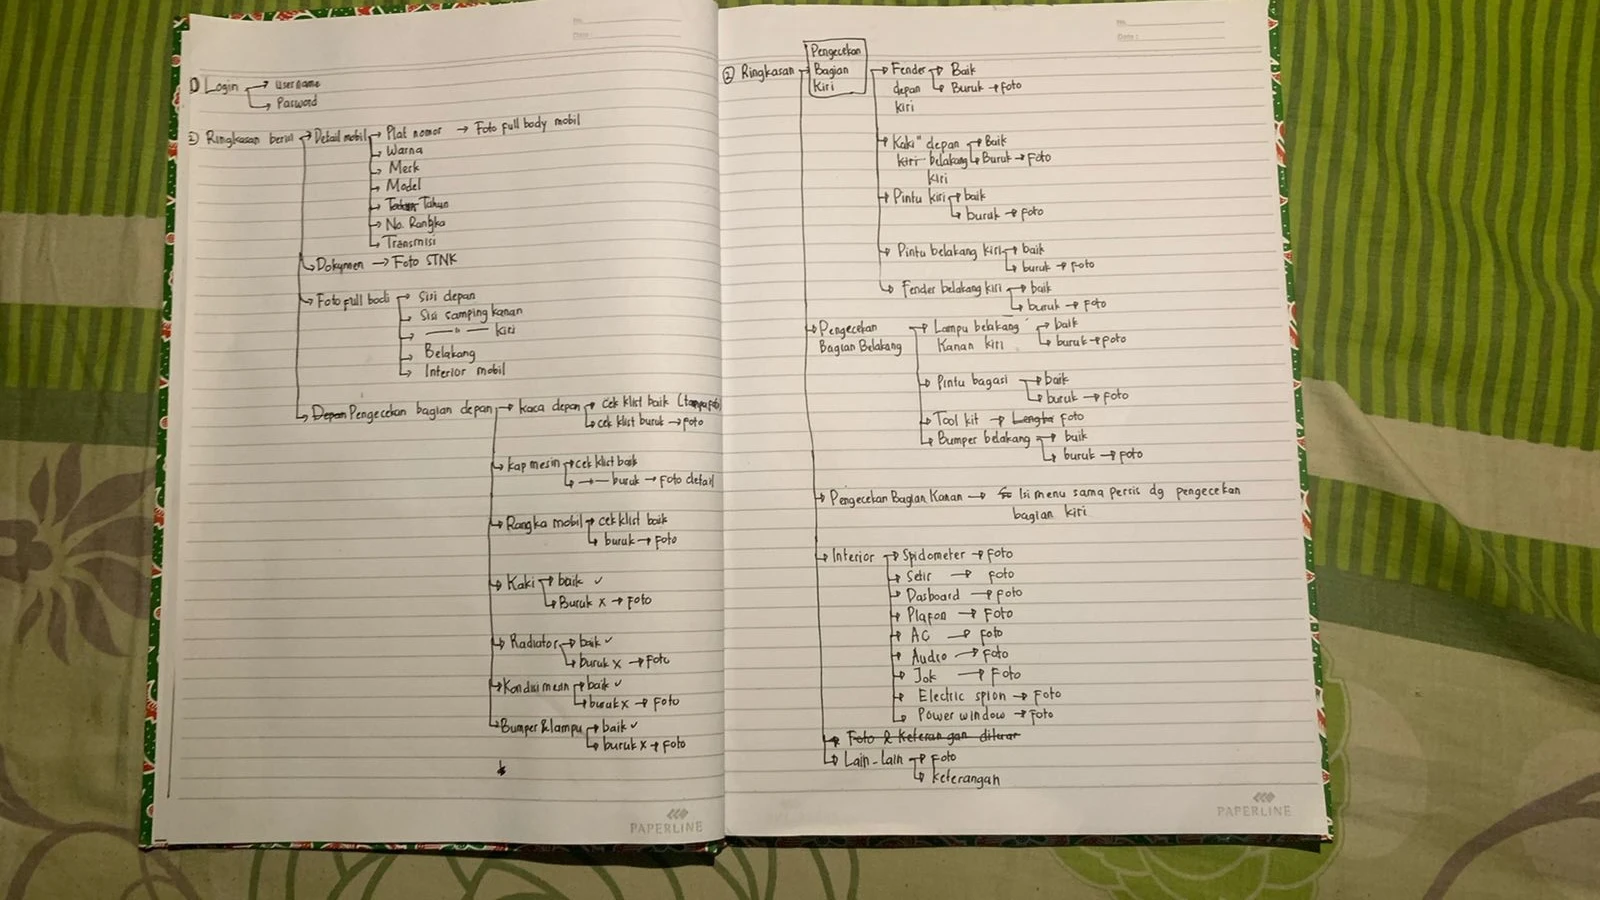 No.
Date :
① Login → Username
→ Pasword
② Ringkasan berisi → Detail mobil → Plat nomor → Foto full body mobil
→ Warna
→ Merk
→ Model
→ Tahun
→ No. Rangka
→ Transmisi
→ Dokumen → Foto STNK
→ Foto full bodi → Sisi depan
→ Sisi samping kanan
→ —〃— kiri
→ Belakang
→ Interior mobil
→ Depan Pengecekan bagian depan → kaca depan → cek klist baik (tanpa foto)
→ cek klist buruk → Foto
→ kap mesin → cek klist baik
→ —〃— buruk → Foto detail
→ Rangka mobil → cek klist baik
→ buruk → Foto
→ Kaki → baik ✓
→ Buruk x → Foto
→ Radiator → baik ✓
→ buruk x → Foto
→ Kondisi mesin → baik ✓
→ buruk x → Foto
→ Bumper & lampu → baik ✓
→ buruk x → Foto
PAPERLINE
No.
Date :
② Ringkasan → Pengecekan Bagian Kiri → Fender depan kiri → Baik
→ Buruk → Foto
→ Kaki" depan → Baik
kiri - belakang kiri → Buruk → Foto
→ Pintu kiri → baik
→ buruk → Foto
→ Pintu belakang kiri → baik
→ buruk → Foto
→ Fender belakang kiri → baik
→ buruk → Foto
→ Pengecekan Bagian Belakang → Lampu belakang Kanan kiri → baik
→ buruk → Foto
→ Pintu bagasi → baik
→ buruk → Foto
→ Tool kit → Lengka Foto
→ Bumper belakang → baik
→ buruk → Foto
→ Pengecekan Bagian Kanan → Isi menu sama persis dg pengecekan
bagian kiri
→ Interior → Spidometer → Foto
→ Setir → Foto
→ Dasboard → Foto
→ Plafon → Foto
→ AC → Foto
→ Audio → Foto
→ Jok → Foto
→ Electric spion → Foto
→ Power window → Foto
→ Foto & Keterangan diluar
→ Lain-lain → Foto
→ keterangan
PAPERLINE